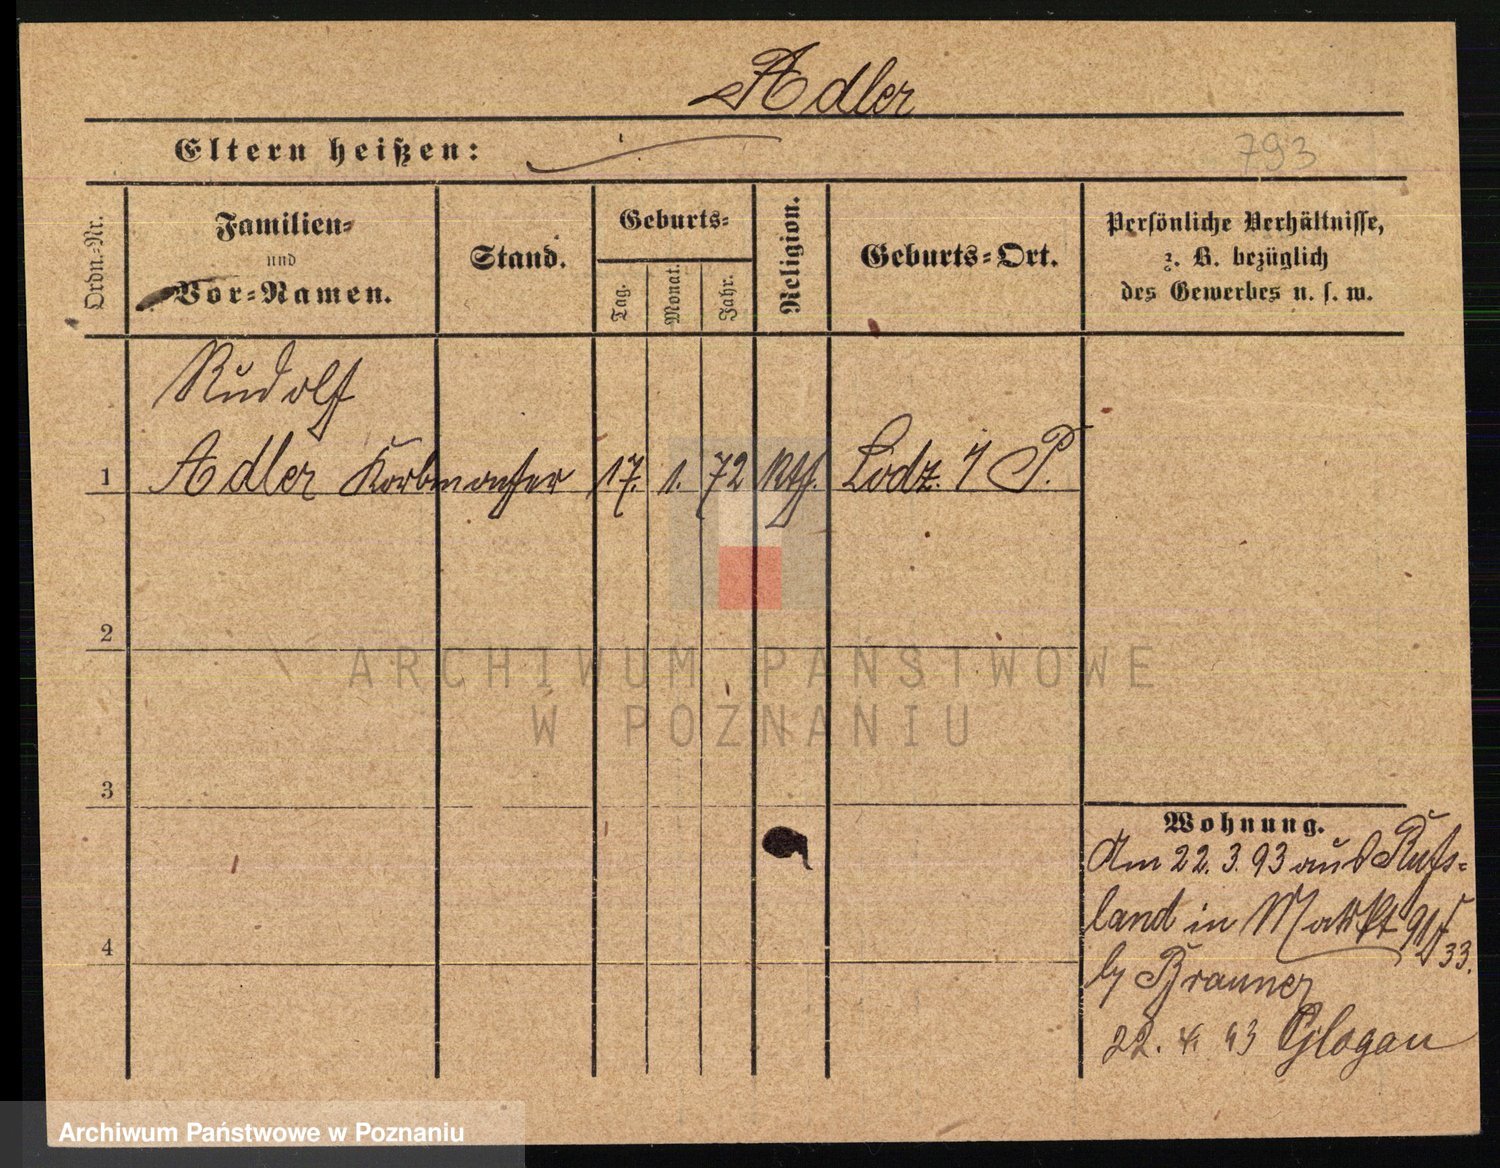 Adler
Eltern heißen:
793
Ordn.-Nr.
Familien-
und
Vor-Namen.
Stand.
Geburts-
Tag.
Monat.
Jahr.
Religion.
Geburts-Ort.
Persönliche Verhältnisse,
z. B. bezüglich
des Gewerbes u. s. w.
Rudolf
1 Adler Korbmacher 17. 1. 72 Lodz. P.
2
3
4
Wohnung.
Am 22. 3. 93 aus Russ-
land in Markt 33.
by Brauner
22. 93 Glogau
ARCHIWUM PAŃSTWOWE
W POZNANIU
Archiwum Państwowe w Poznaniu